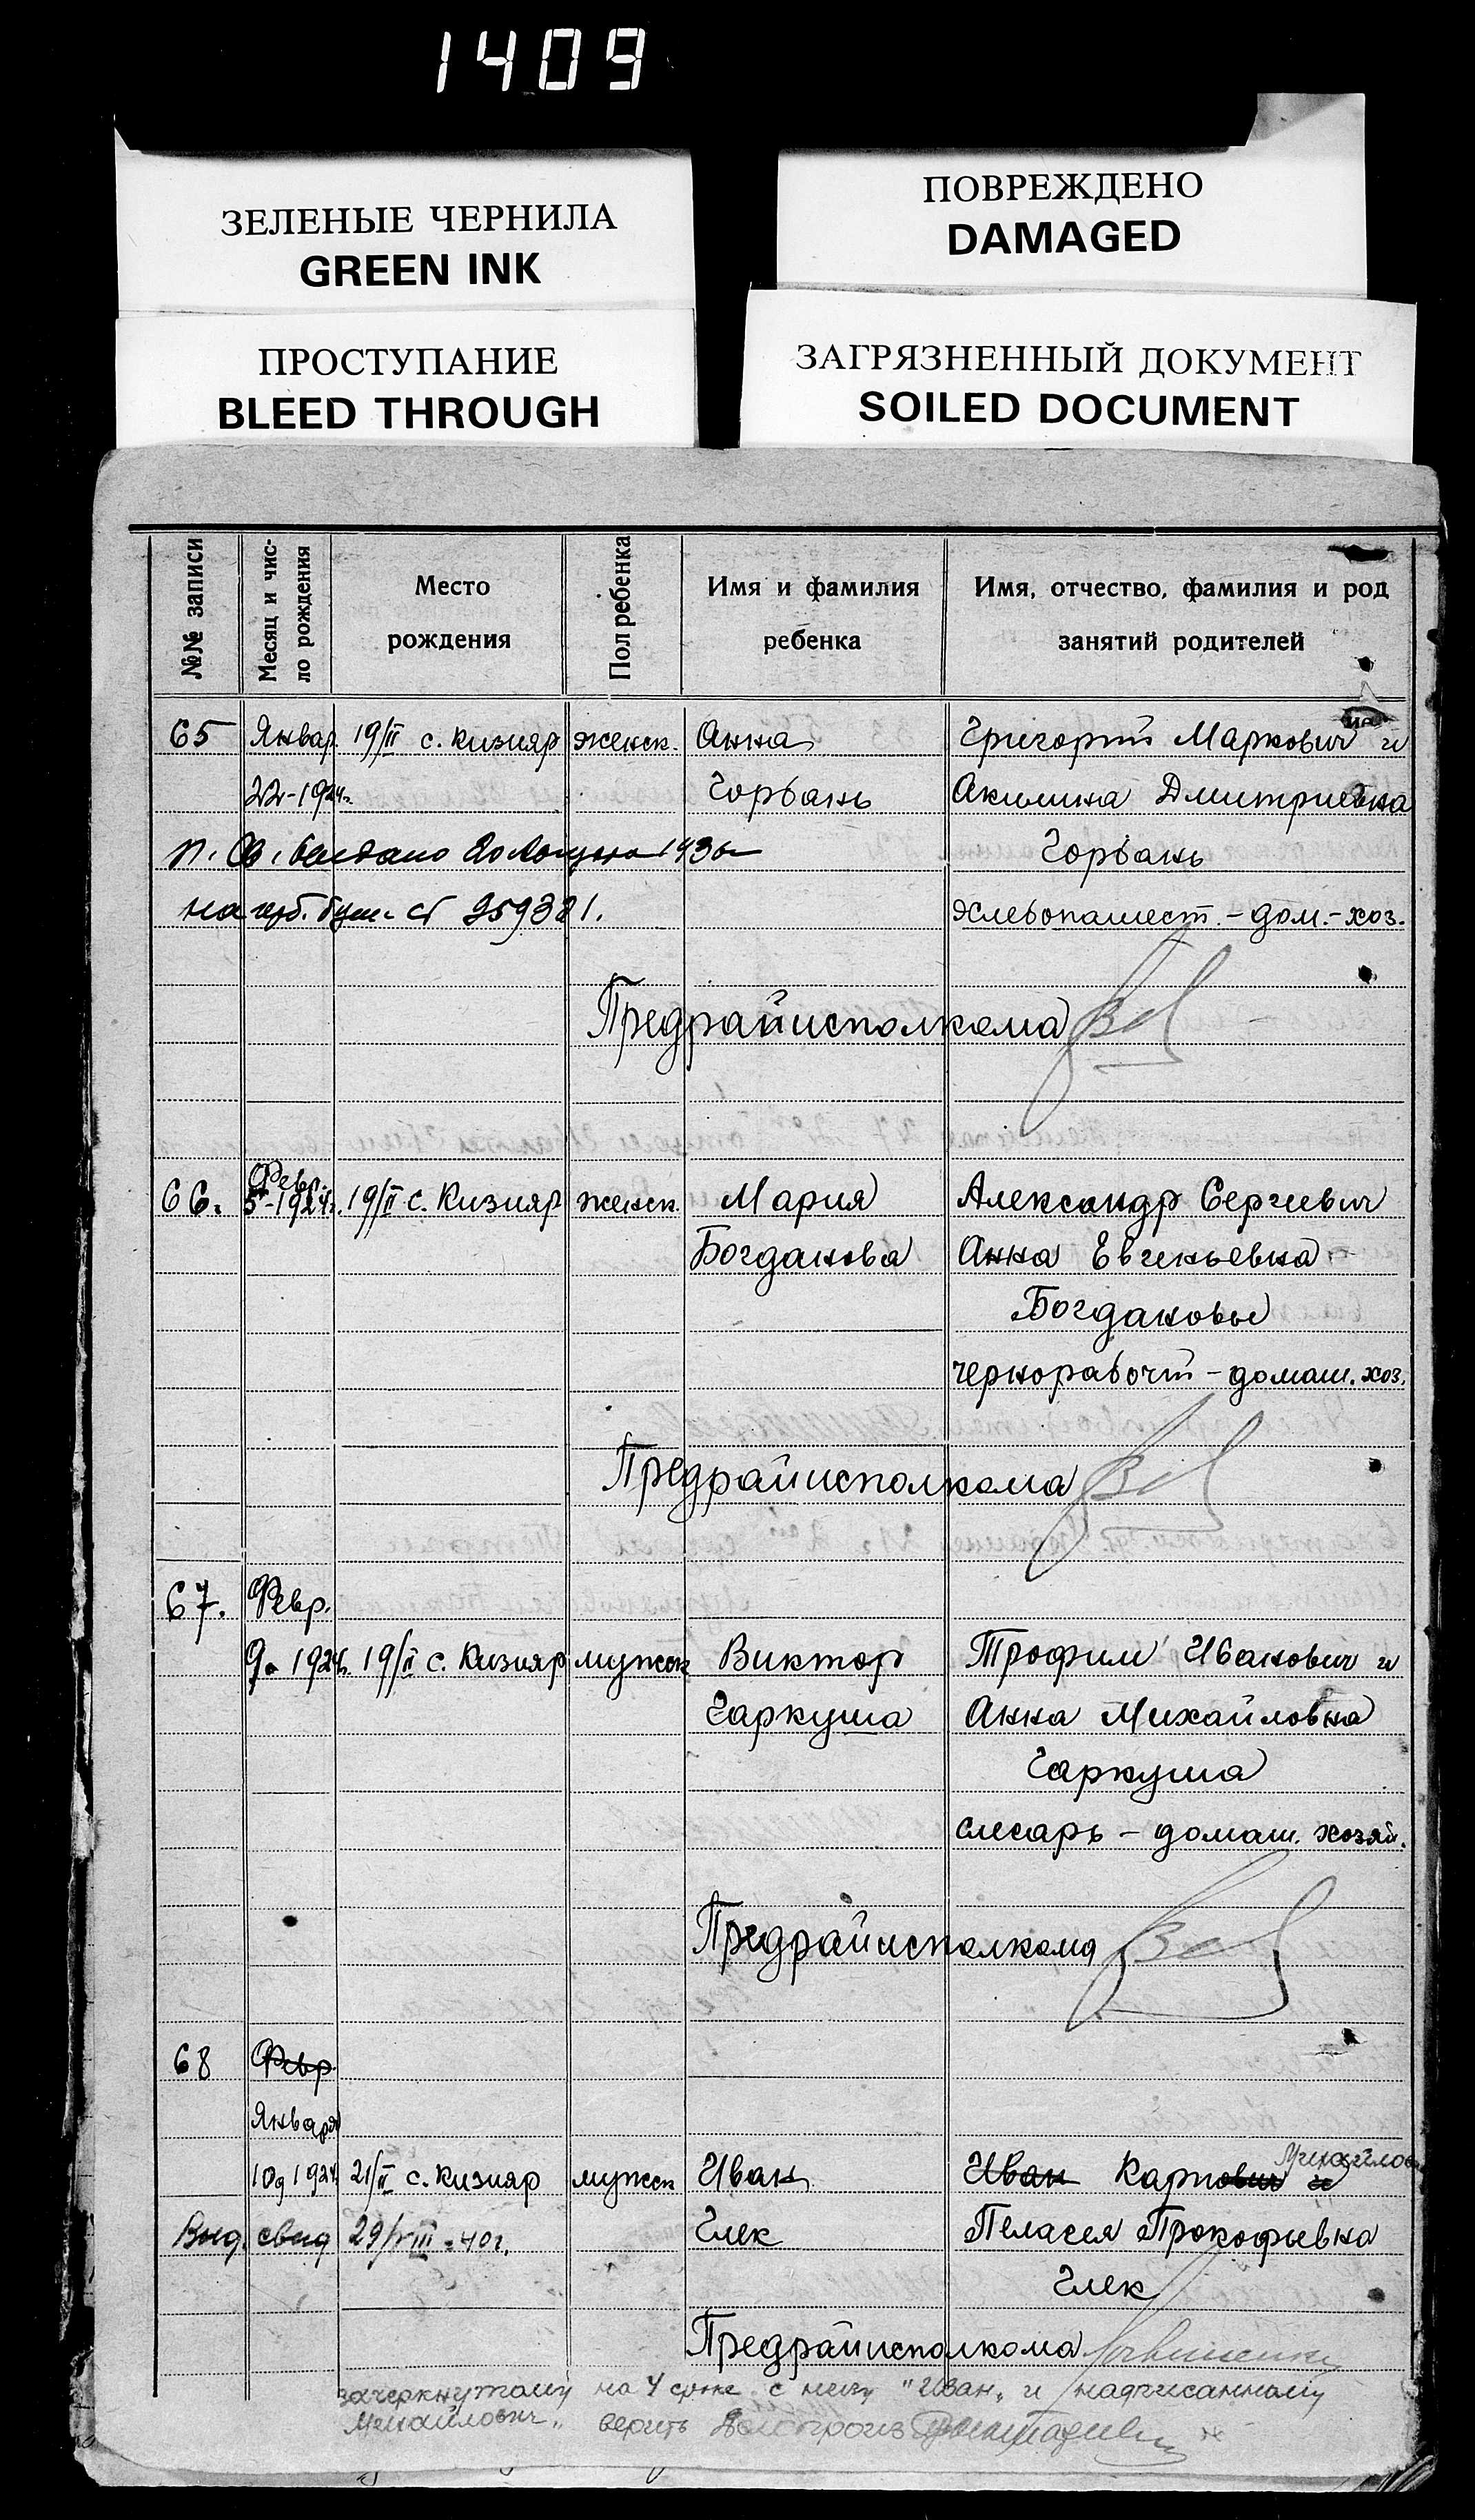 1409
ЗЕЛЕНЫЕ ЧЕРНИЛА
GREEN INK
ПРОСТУПАНИЕ
BLEED THROUGH
ПОВРЕЖДЕНО
DAMAGED
ЗАГРЯЗНЕННЫЙ ДОКУМЕНТ
SOILED DOCUMENT
№№ записи
Месяц и чис-
ло рождения
Место
рождения
Пол ребенка
Имя и фамилия
ребенка
Имя, отчество, фамилия и род
занятий родителей
65 Январ. 19/II с. Кизияр женск. Анна Григорий Маркович и
22-1924г. Горбань Акилина Дмитриевна
Горбань
п. Св.
на герб. бум. 959381.
хлебопашест. - дом.-хоз.
Предрайисполкома
Февр.
66. 5-1924г. 19/II с. Кизияр женск. Мария Александр Сергиевич
Богданова Анна Евгеньевна
Богдановы
чернорабочий - домаш. хоз.
Предрайисполкома
67. Февр.
9. 1924г. 19/II с. Кизияр мужск Виктор Трофим Иванович и
Гаркуша Анна Михайловна
Гаркуша
слесарь - домаш. хозяй.
Предрайисполкома
68 Февр.
Января
Михайлов
10 1924 21/II с. Кизияр мужск Иван Иван Карпович и
Выд. свид 29/VIII-40г. Глек Пелагея Прокофьевна
Глек
Предрайисполкома
зачеркнутому на 4 сроке с низу "Иван" и надписанному
Михайлович" верить